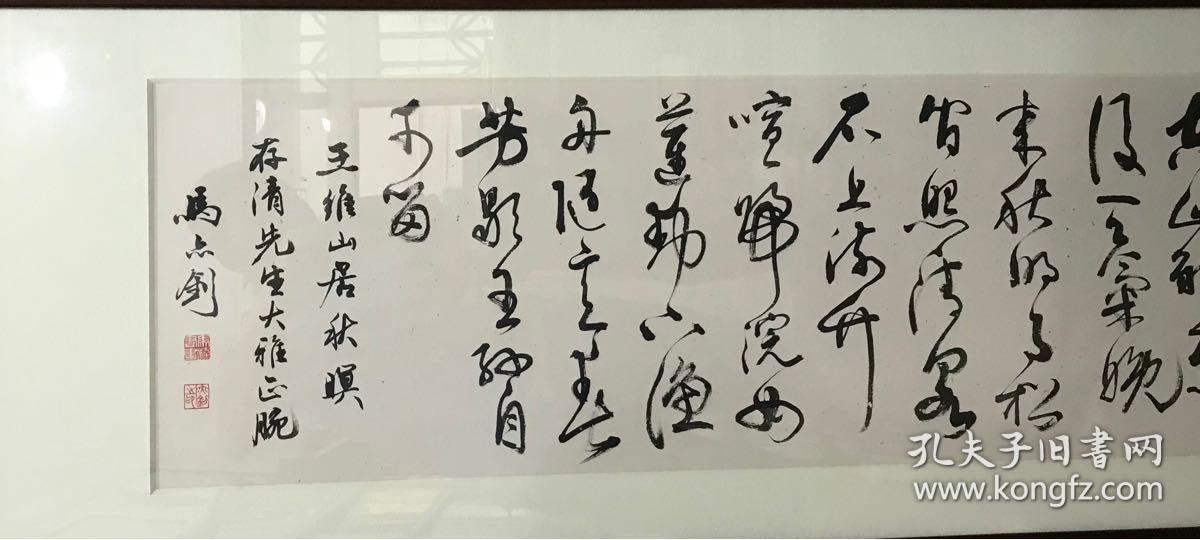 空山新雨
後天氣晚
来秋明月松
間照清泉
石上流竹
喧歸浣女
蓮動下漁
舟随意春
芳歇王孫自
可留
王維山居秋暝
存清先生大雅正腕
馬亦釗
孔夫子旧书网
www.kongfz.com